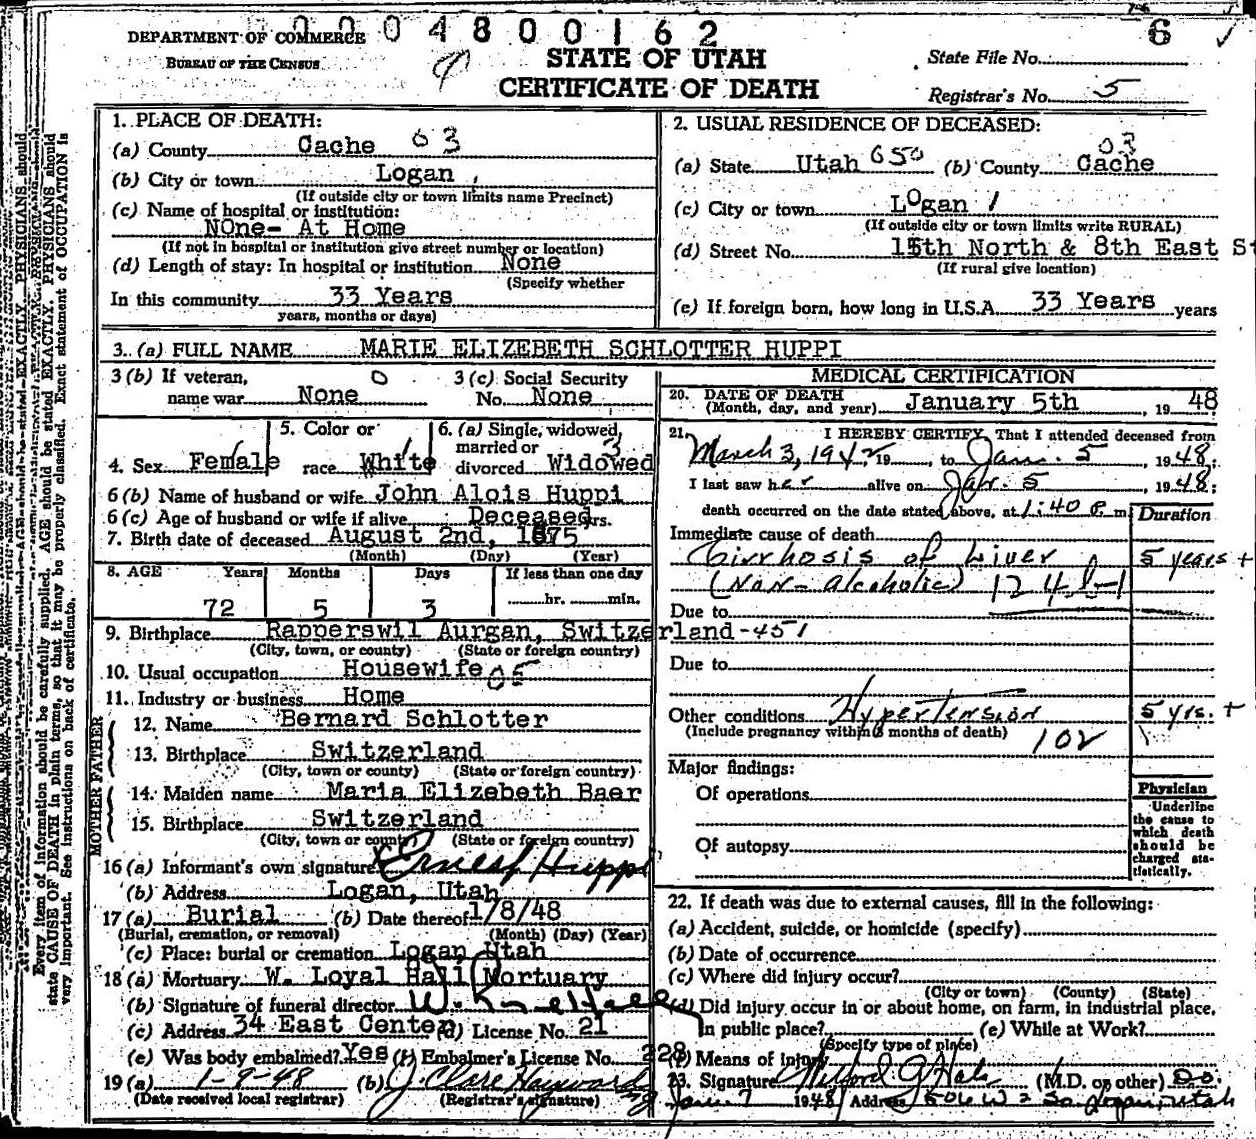 0004800162
6
DEPARTMENT OF COMMERCE
BUREAU OF THE CENSUS
STATE OF UTAH
CERTIFICATE OF DEATH
State File No.
Registrar's No. 5
1. PLACE OF DEATH:
(a) County Cache 03
(b) City or town Logan
(If outside city or town limits name Precinct)
(c) Name of hospital or institution:
NOne- At Home
(If not in hospital or institution give street number or location)
(d) Length of stay: In hospital or institution None
(Specify whether
In this community 33 Years
years, months or days)
2. USUAL RESIDENCE OF DECEASED:
03
(a) State Utah 650 (b) County Cache
(c) City or town LOgan 1
(If outside city or town limits write RURAL)
(d) Street No. 15th North & 8th East St
(If rural give location)
(e) If foreign born, how long in U.S.A. 33 Years years
3. (a) FULL NAME MARIE ELIZEBETH SCHLOTTER HUPPI
3 (b) If veteran, 0
name war None
3 (c) Social Security
No. None
4. Sex Female
5. Color or
race White
6. (a) Single, widowed, married or
divorced Widowed 3
6 (b) Name of husband or wife John Alois Huppi
6 (c) Age of husband or wife if alive Deceased yrs.
7. Birth date of deceased August 2nd, 1875
(Month) (Day) (Year)
8. AGE Years Months Days If less than one day
72 5 3 hr. min.
9. Birthplace Rapperswil Aurgan, Switzerland-451
(City, town, or county) (State or foreign country)
10. Usual occupation Housewife 05
11. Industry or business Home
FATHER
12. Name Bernard Schlotter
13. Birthplace Switzerland
(City, town or county) (State or foreign country)
MOTHER
14. Maiden name Maria Elizebeth Baer
15. Birthplace Switzerland
(City, town or county) (State or foreign country)
16 (a) Informant's own signature X Ernest Huppi
(b) Address Logan, Utah
17 (a) Burial (b) Date thereof 1/8/48
(Burial, cremation, or removal) (Month) (Day) (Year)
(c) Place: burial or cremation Logan Utah
18 (a) Mortuary W. Loyal Hall Mortuary
(b) Signature of funeral director W. Loyal Hall
(c) Address 34 East Center (d) License No. 21
(e) Was body embalmed? Yes (f) Embalmer's License No. 228
19 (a) 1-9-48 (b) J. Clare Hayward
(Date received local registrar) (Registrar's signature)
MEDICAL CERTIFICATION
20. DATE OF DEATH
(Month, day, and year) January 5th, 19 48
21. I HEREBY CERTIFY, That I attended deceased from
March 3, 1942, 19 , to Jan. 5 , 19 48;
I last saw her alive on Jan. 5 , 19 48;
death occurred on the date stated above, at 1:40 P. m. Duration
Immediate cause of death
Cirrhosis of Liver 5 years +
(Non-alcoholic) 124b-1
Due to
Due to
Other conditions Hypertension 5 yrs. +
(Include pregnancy within 3 months of death) 102
Major findings:
Of operations
Of autopsy
Physician
Underline
the cause to
which death
should be
charged sta-
tistically.
22. If death was due to external causes, fill in the following:
(a) Accident, suicide, or homicide (specify)
(b) Date of occurrence
(c) Where did injury occur?
(City or town) (County) (State)
(d) Did injury occur in or about home, on farm, in industrial place,
in public place? (e) While at Work?
(Specify type of place)
(f) Means of injury
23. Signature (M.D. or other) D.O.
Jan. 7 1948 Address 506 W 2 So Logan, Utah
Every item of information should be carefully supplied. AGE should be stated EXACTLY. PHYSICIANS should
state CAUSE OF DEATH in plain terms, so that it may be properly classified. Exact statement of OCCUPATION is
very important. See instructions on back of certificate.